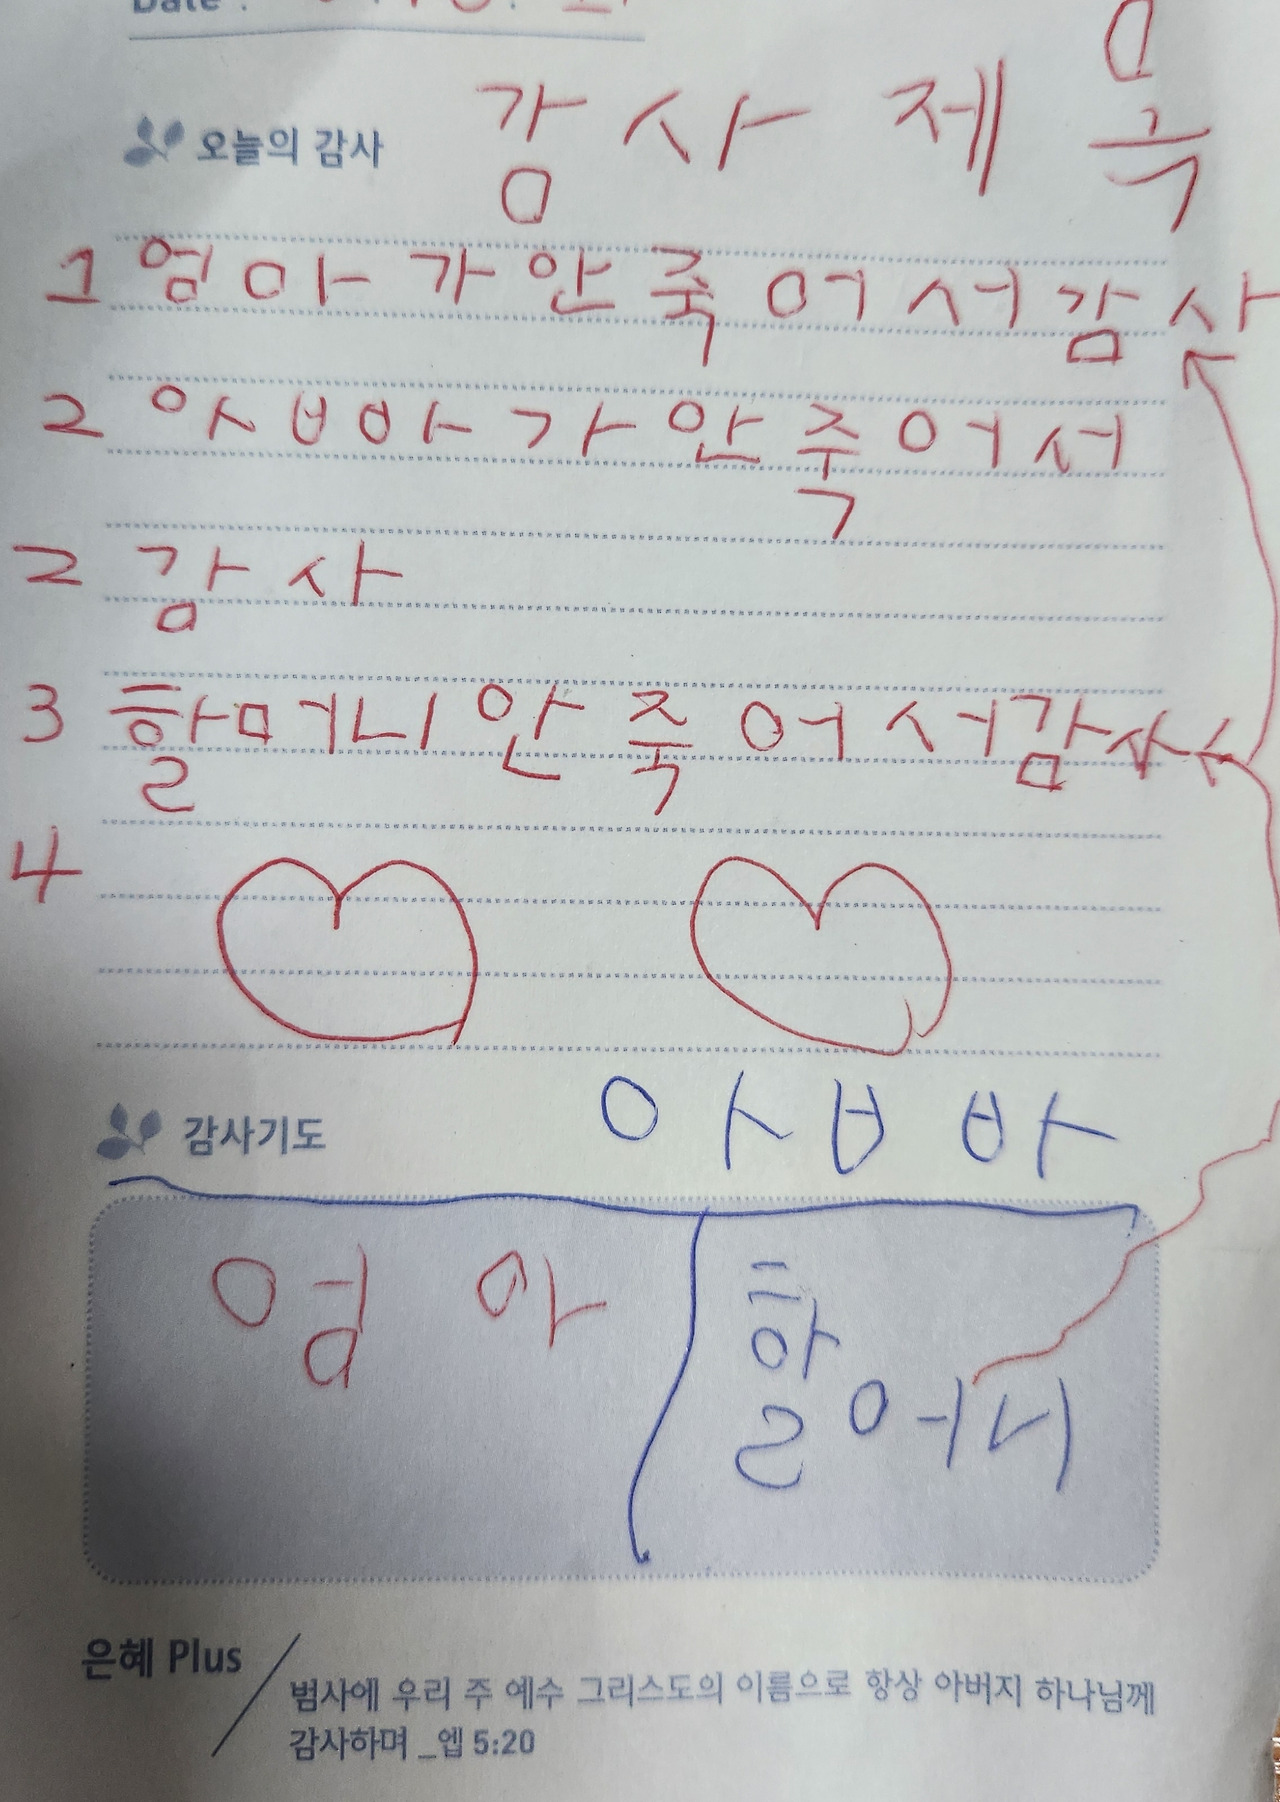 Date :
오늘의 감사 감사 제목
1 엄마가 안죽어서 감사
2 아빠가 안죽어서
2 감사
3 할머니 안죽어서 감사
4
감사기도 아빠
엄마
할머니
은혜 Plus
범사에 우리 주 예수 그리스도의 이름으로 항상 아버지 하나님께
감사하며 _엡 5:20